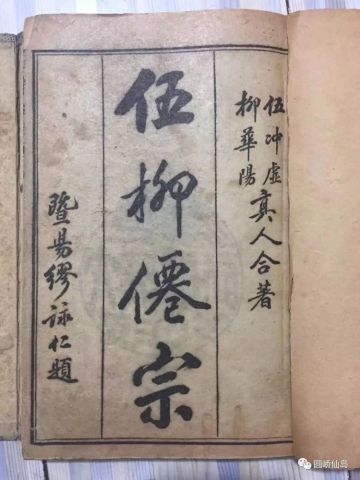 伍冲虚
柳華陽
真人合著
伍柳僊宗
暨昜繆詠仁題
圆峤仙岛